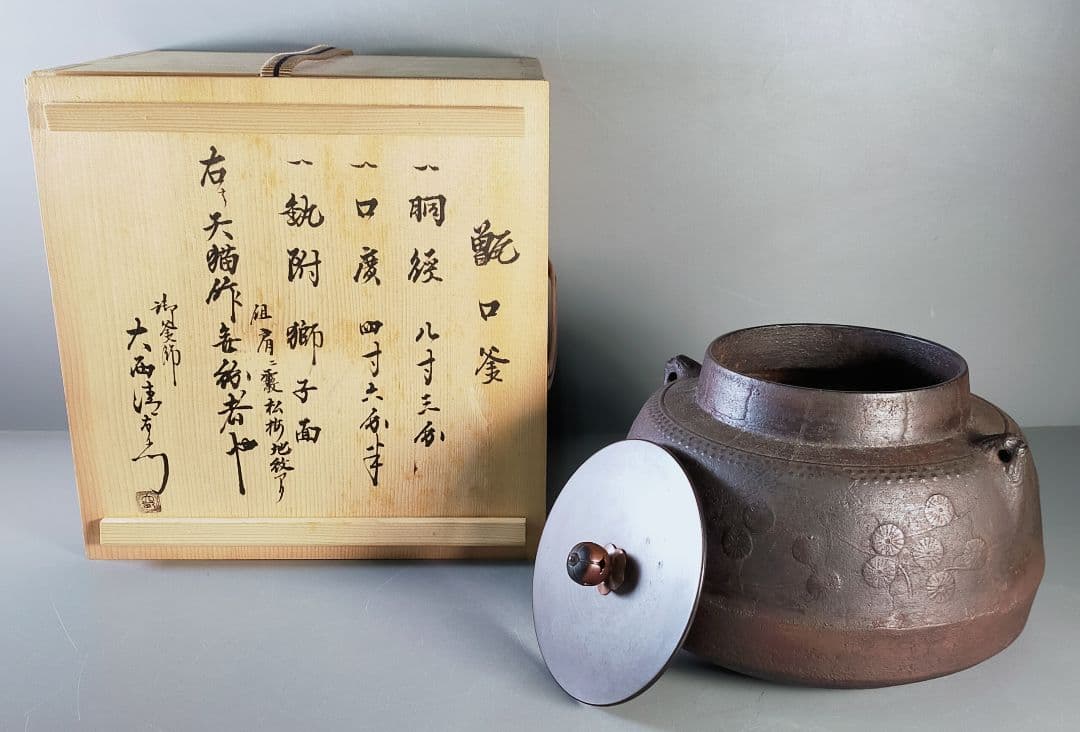 甑口釜
一 胴径 八寸三分
一 口廣 四寸六分半
一 釻附 獅子面
但肩ニ霰松梅地紋アリ
右ハ天猫作無紛者也
御釜師
大西清右衛門